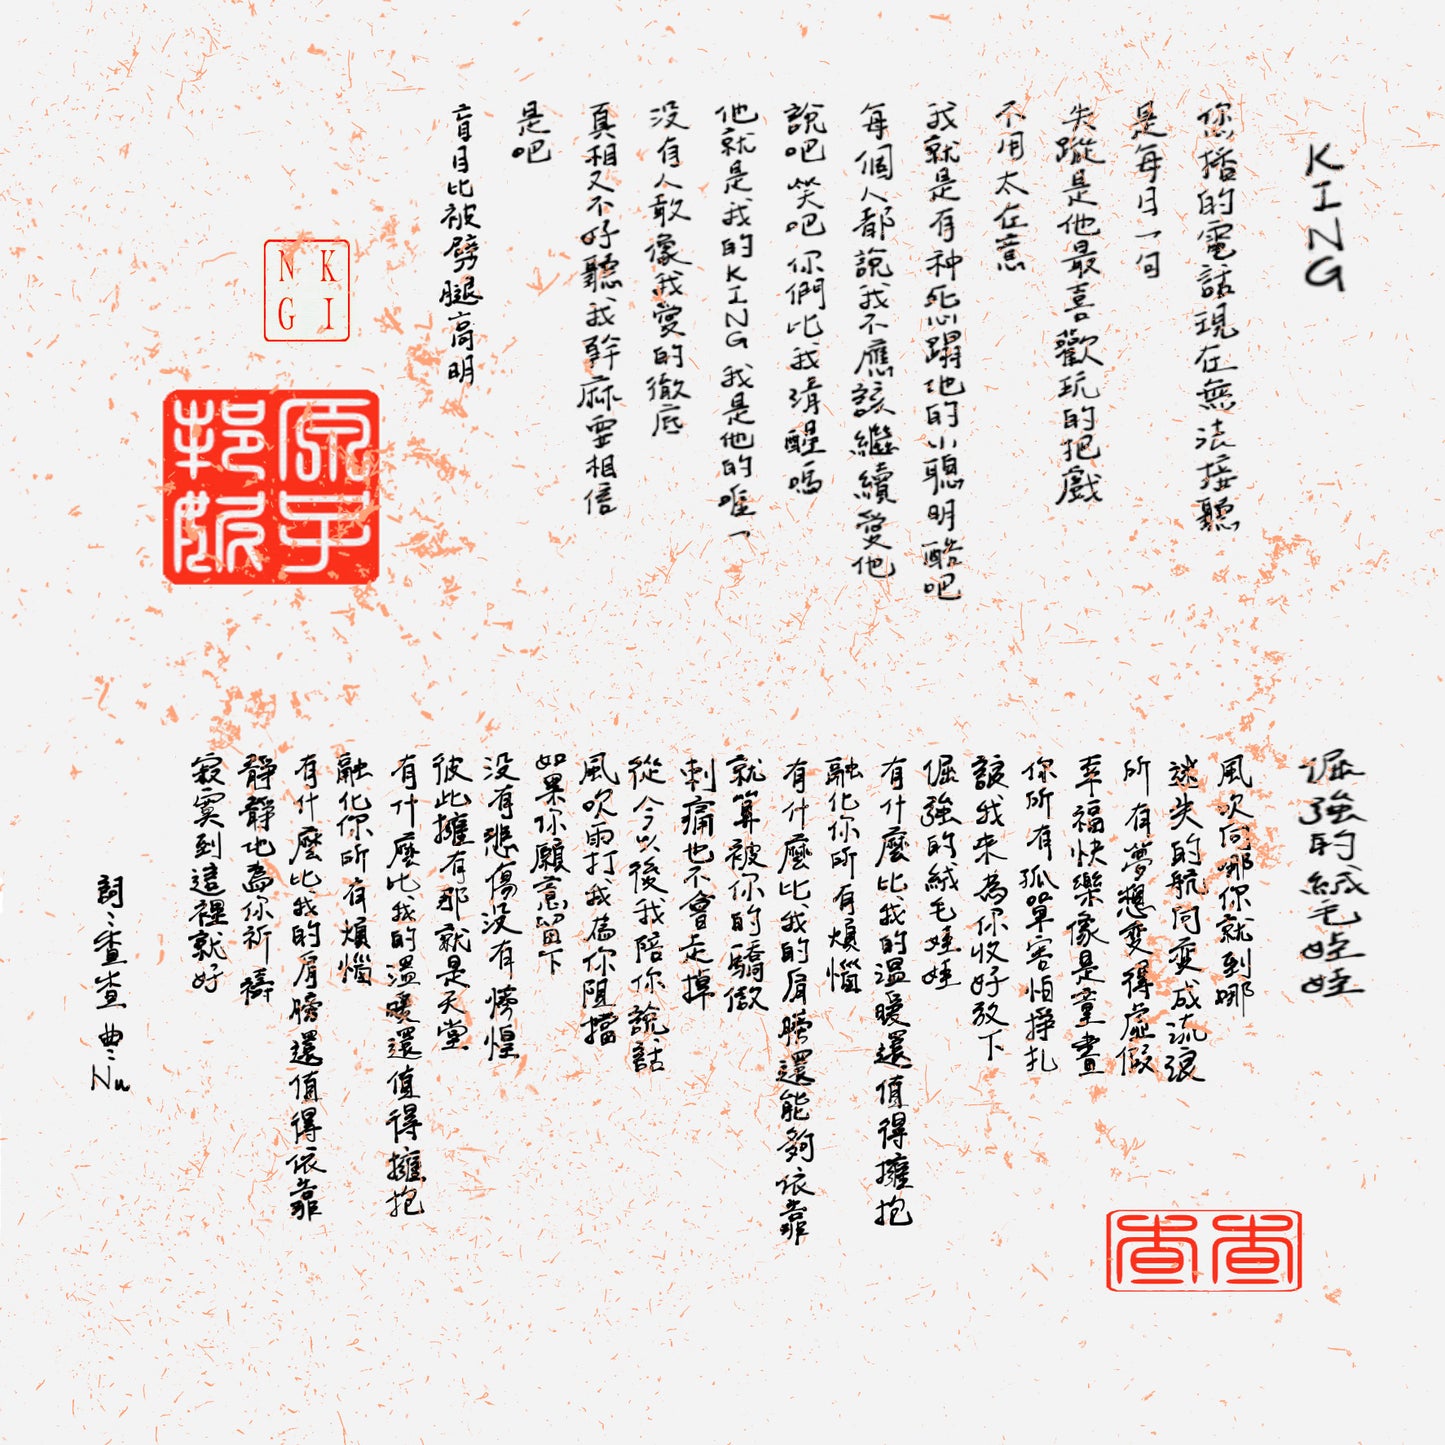 KING
您播的電話現在無法接聽
是每日一句
失蹤是他最喜歡玩的把戲
不用太在意
我就是有种死心蹋地的小聰明酷吧
每個人都說我不應該繼續愛他
說吧笑吧你們比我清醒嗎
他就是我的KING我是他的唯一
没有人敢像我愛的徹底
真相又不好聽我幹麻要相信
是吧
盲目比被劈腿高明
KING
倔強的絨毛娃娃
風吹向哪你就到哪
迷失的航向變成流浪
所有夢想變得虛假
幸福快樂像是童畫
你所有孤單害怕掙扎
該我来為你收好放下
倔強的絨毛娃娃
有什麼比我的溫暖還值得擁抱
融化你所有煩惱
有什麼比我的肩膀還能夠依靠
就算被你的驕傲
刺痛也不會走掉
從今以後我陪你說話
風吹雨打我為你阻擋
如果你願意留下
没有悲傷没有徬惶
彼此擁有那就是天堂
有什麼比我的溫暖還值得擁抱
融化你所有煩惱
有什麼比我的肩膀還值得依靠
靜靜地為你祈禱
寂寞到這裡就好
詞:查查 曲:Nu
查查